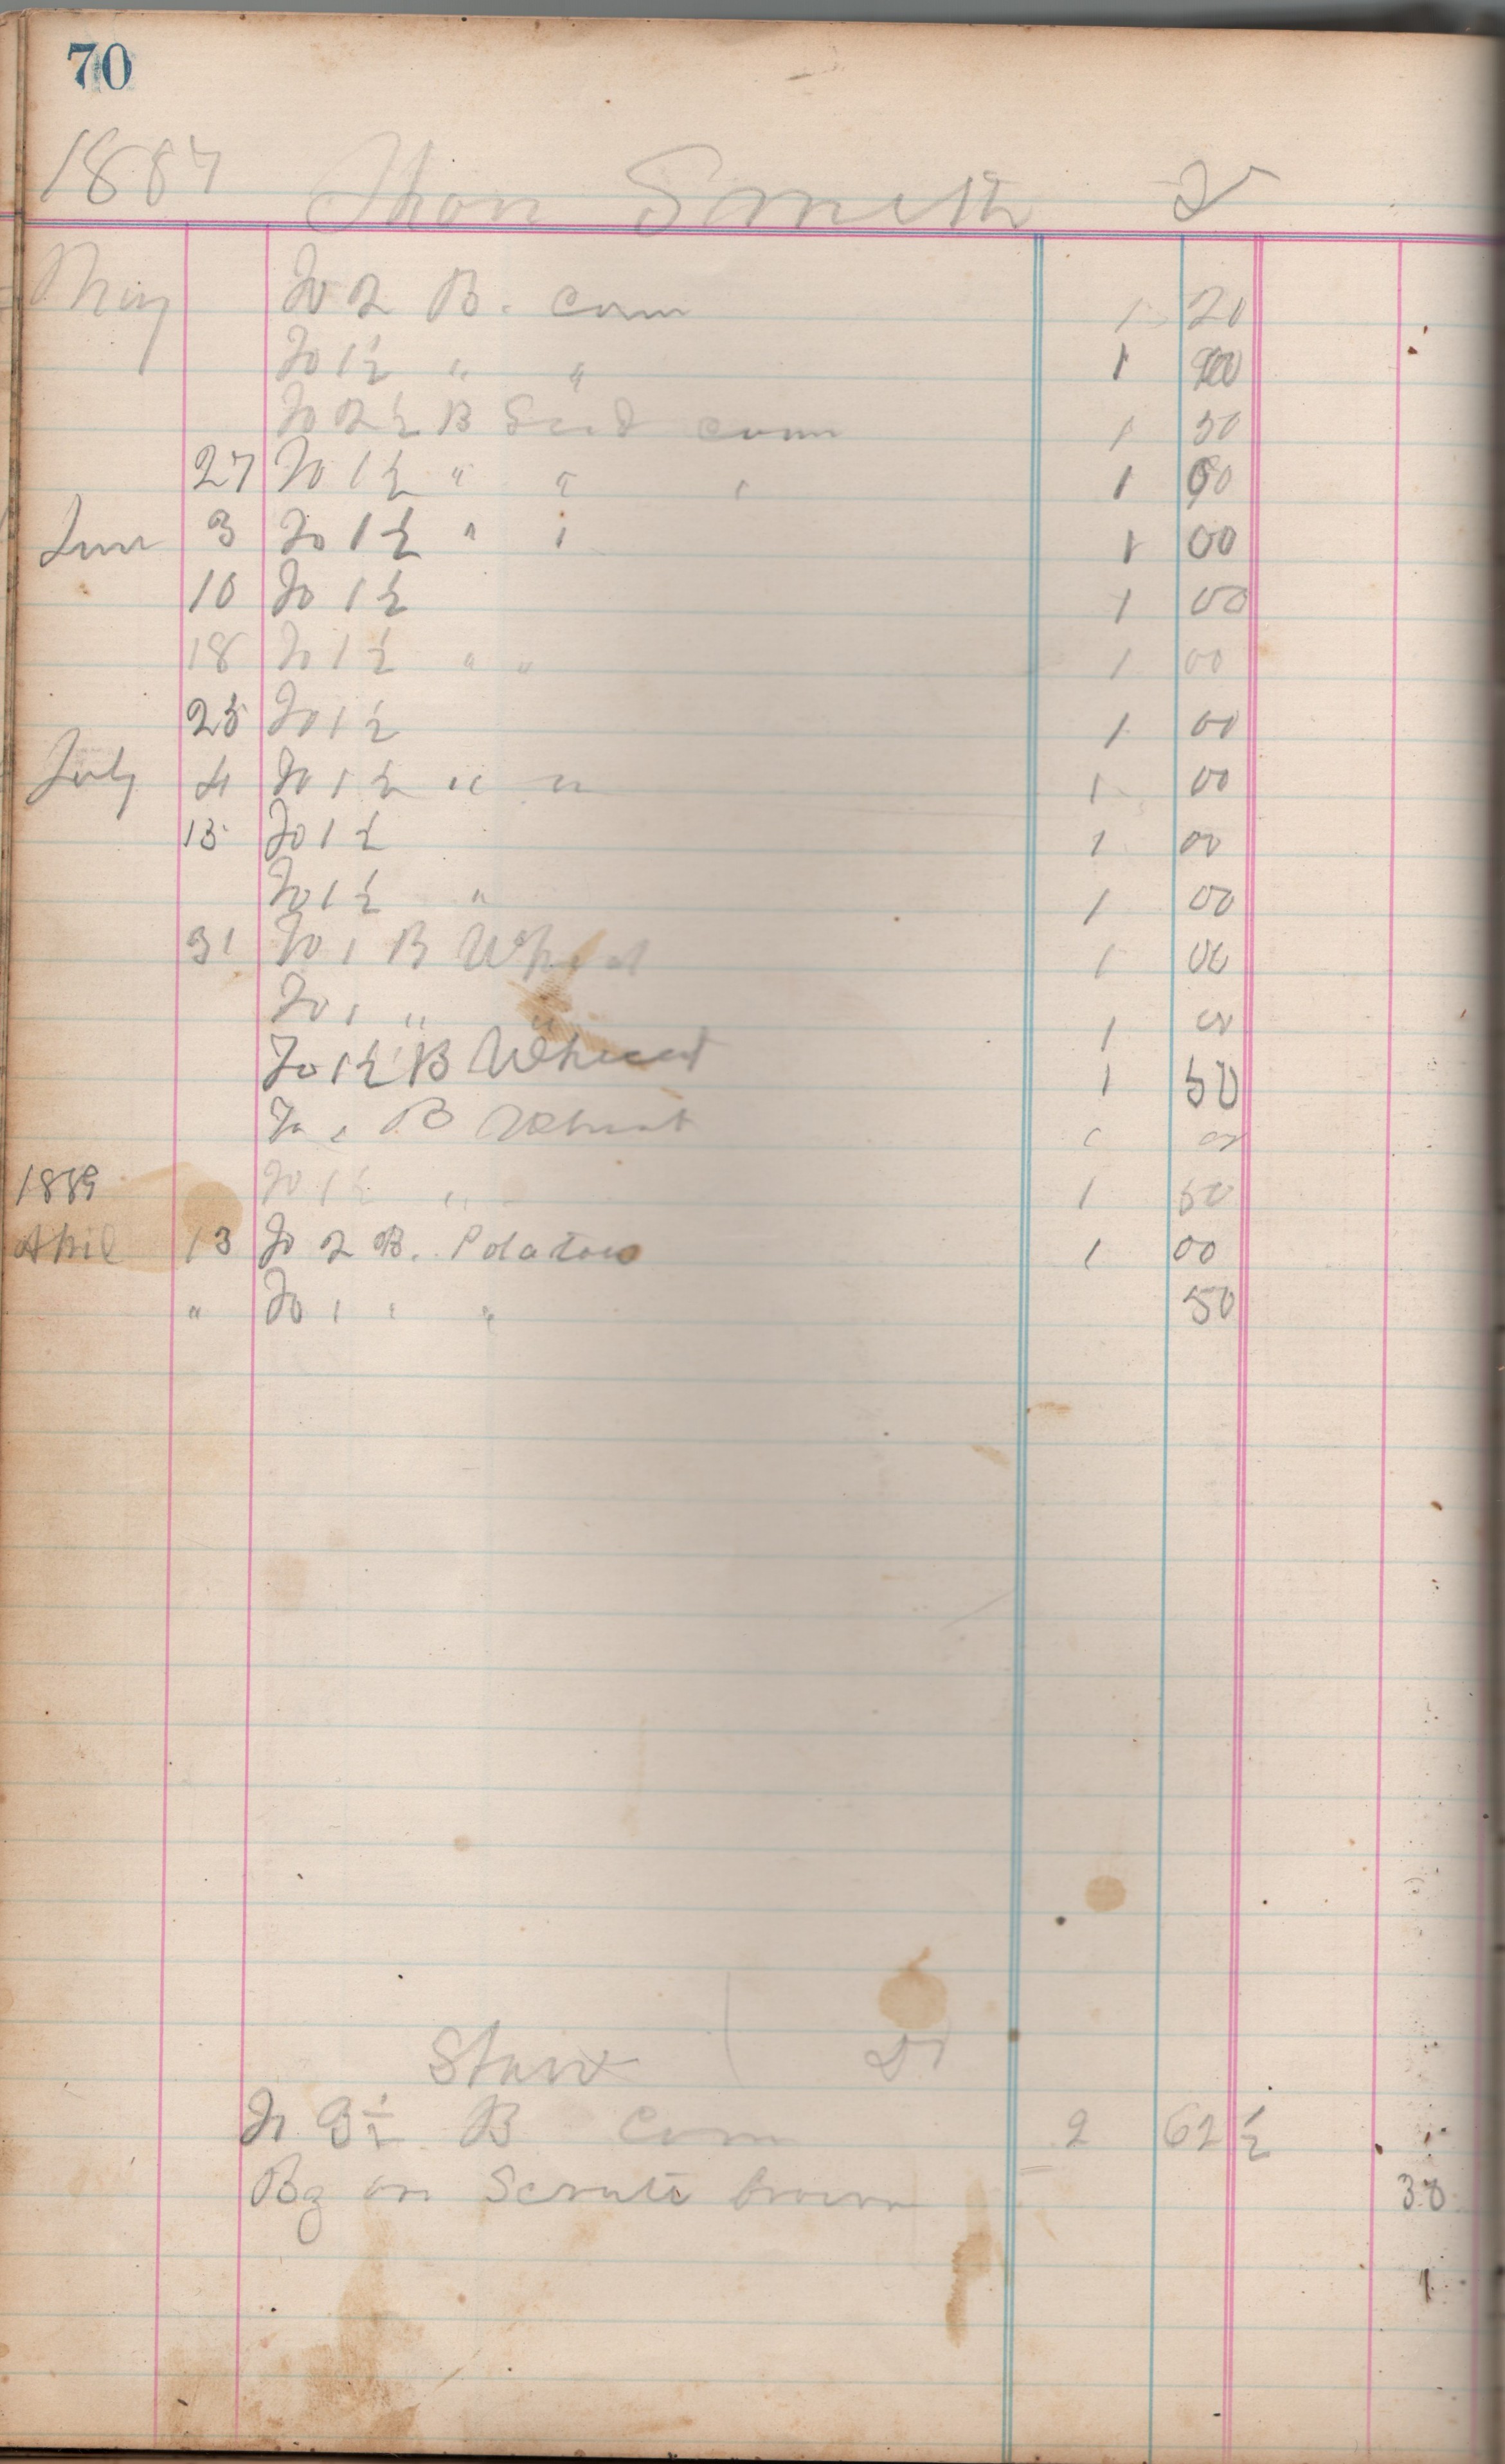 70
1887 Jhon Smith Dr
May To 2 B. corn 1 20
To 1½ " " 1 00
To 2½ B Seed corn 1 50
27 To 1½ " " " 1 00
June 3 To 1½ " " 1 00
10 To 1½ 1 00
18 To 1½ " " 1 00
25 To 1½ 1 00
July 4 To 1½ " " 1 00
15 To 1½ 1 00
To 1½ " 1 00
31 To 1 B Wheat 1 00
To 1 " " 1 00
To 1½ B Wheat 1 50
To 1 B Wheat 1 00
1889 To 1½ " 1 50
April 13 To 2 B. Potatoes 1 00
" To 1 " " 50
Dr
To 3½ B Corn 2 62½
on brown 38